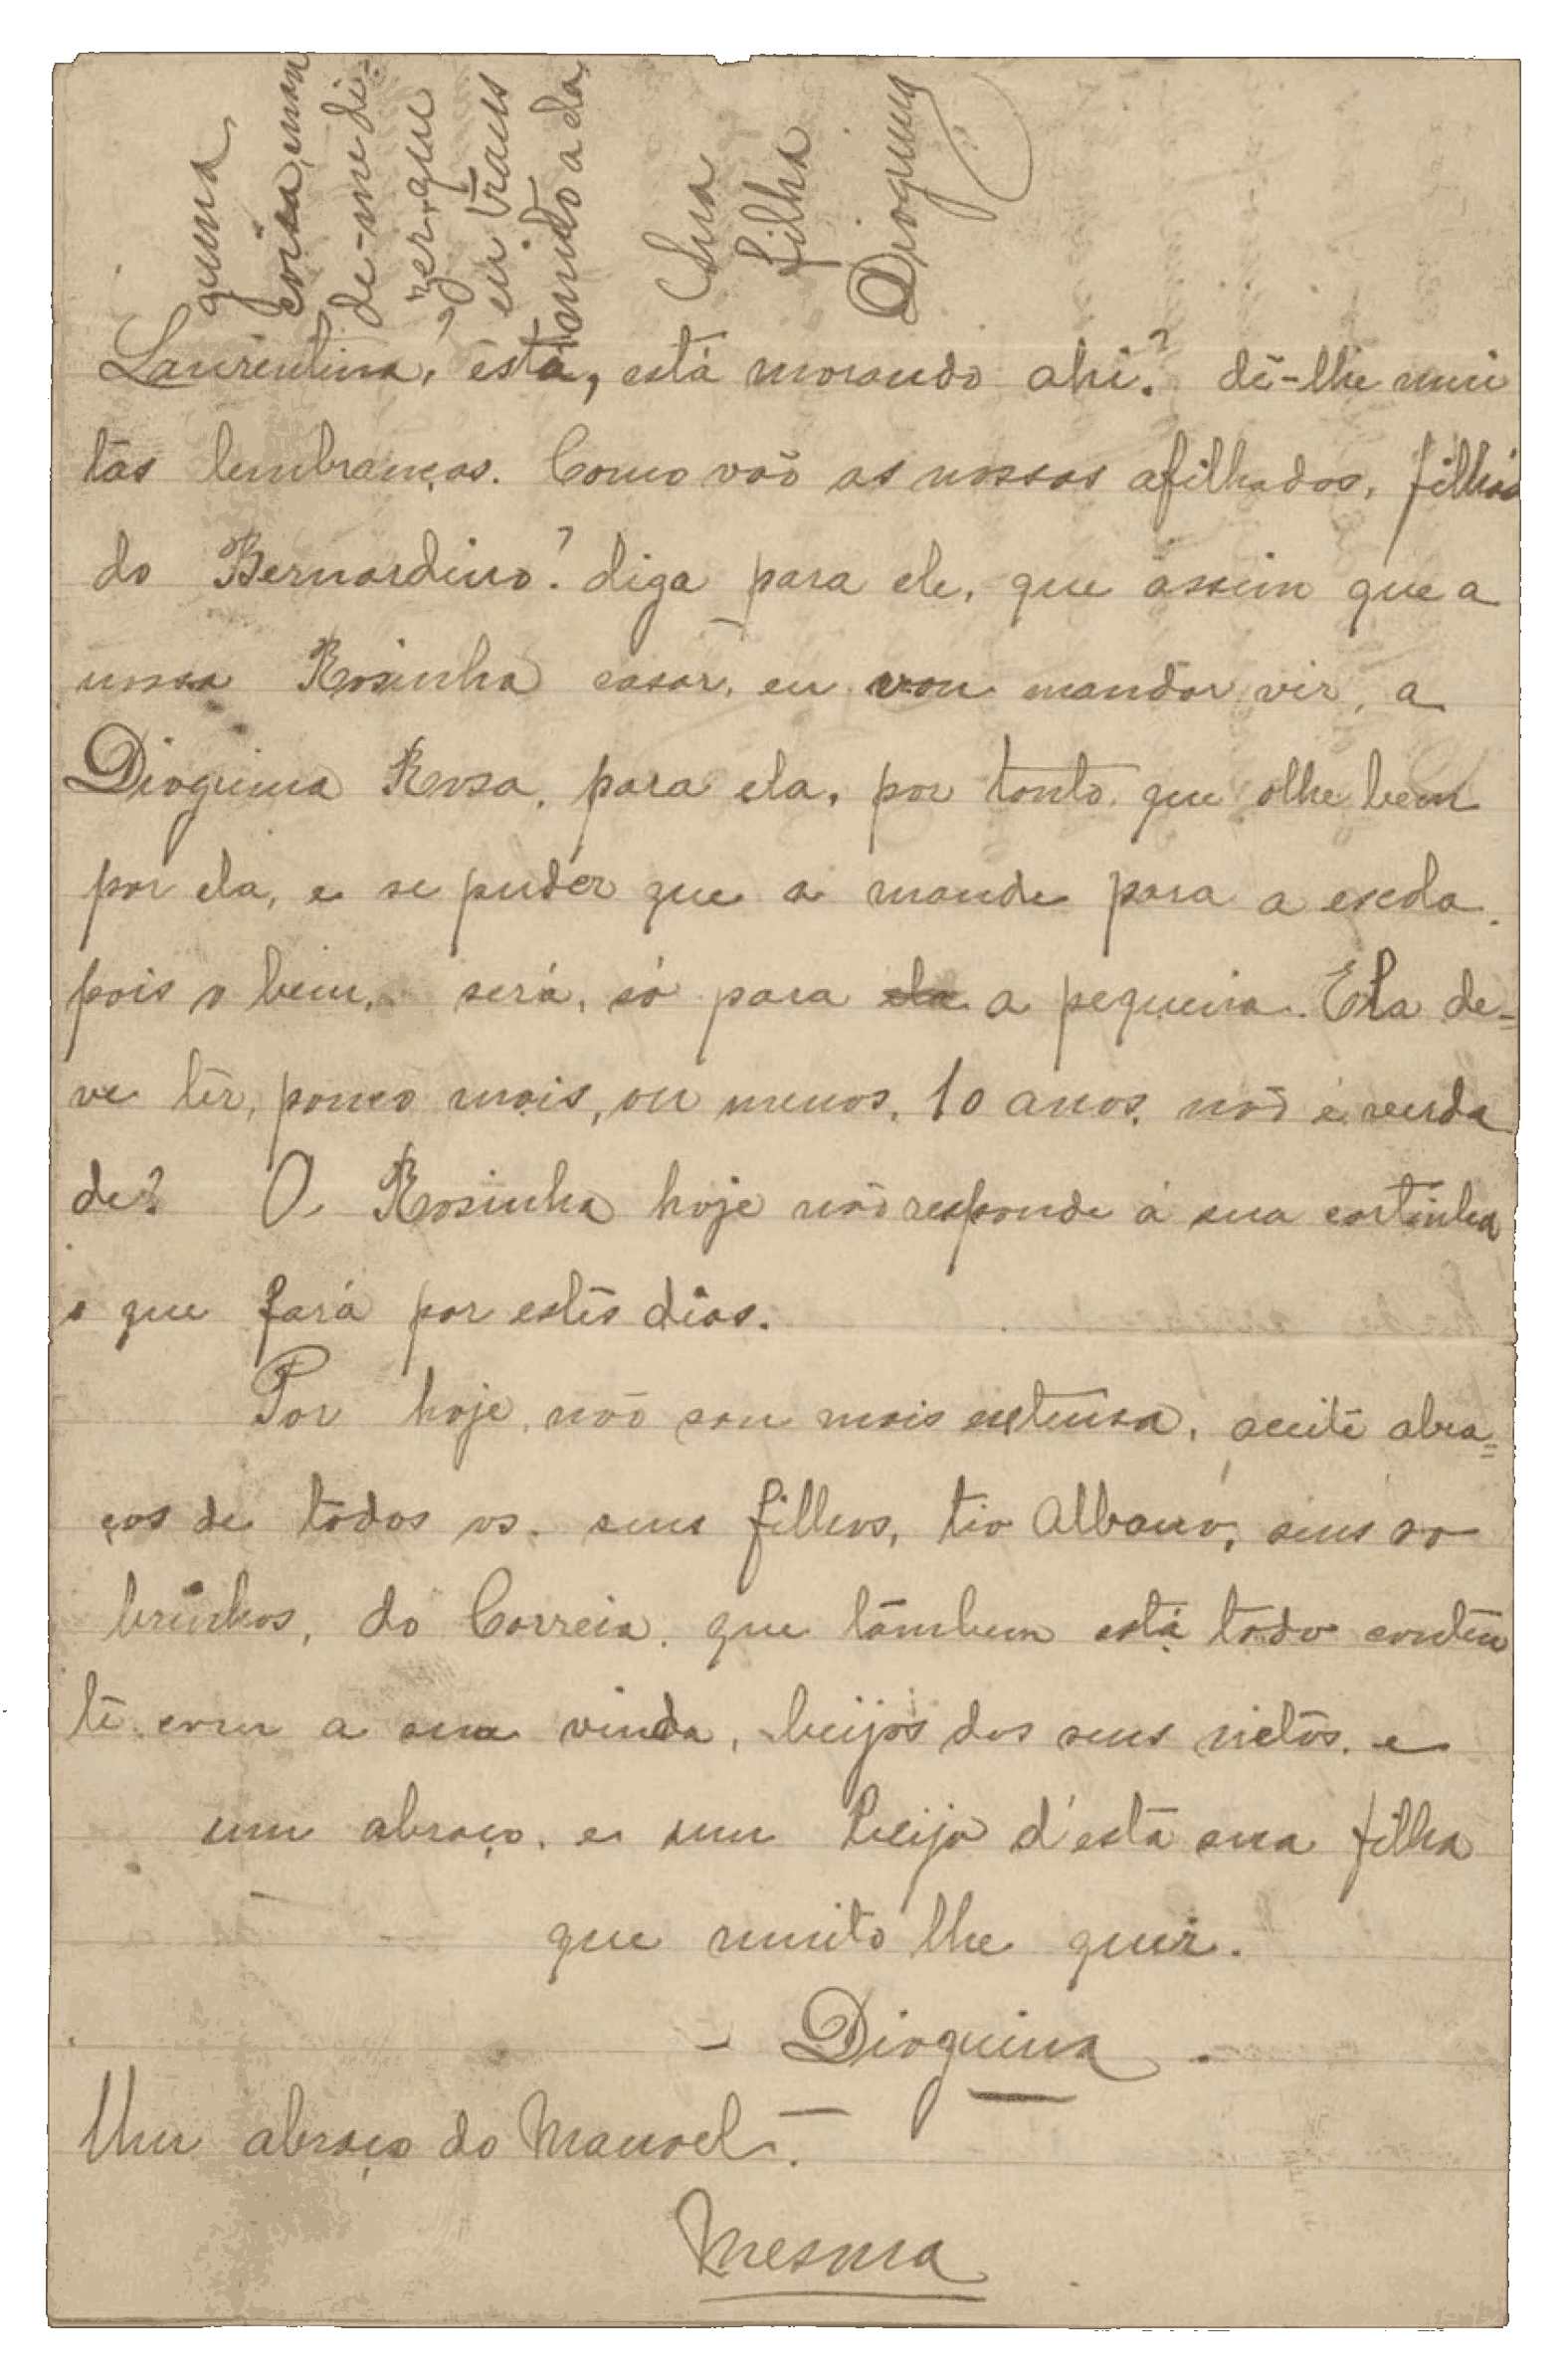 Laurentina? esta, está morando ahi? dê-lhe mui
tas lembranças. Como vão os nossos afilhados, filhos
do Bernardino? diga para ele, que assim que a
nossa Rosinha casar, eu vou mandar vir, a
Dioguina Rosa, para ela, por tanto, que olhe bem
por ela, e se pudér que a mande para a escola.
pois o bem, será, só para ela a pequena. Ela de=
ve ter, pouco mais, ou menos, 10 anos, não é verda
de? A Rosinha hoje não responde á sua cartinha
o que fará por estes dias.
Por hoje, não sou mais extensa, aceite abra=
ços de todos os seus filhos, tio Albano, seus so
brinhos, do Correia, que tambem está todo conten
te com a sua vinda, beijos dos seus netos, e
um abraço, e um beijo d'esta sua filha
que muito lhe quer.
- Dioguina -
Um abraço do Manoel.
Mesma
guma
coisa, man
de-me di-
zer, que
eu trans
mito a ela
Sua
filha
Dioguina